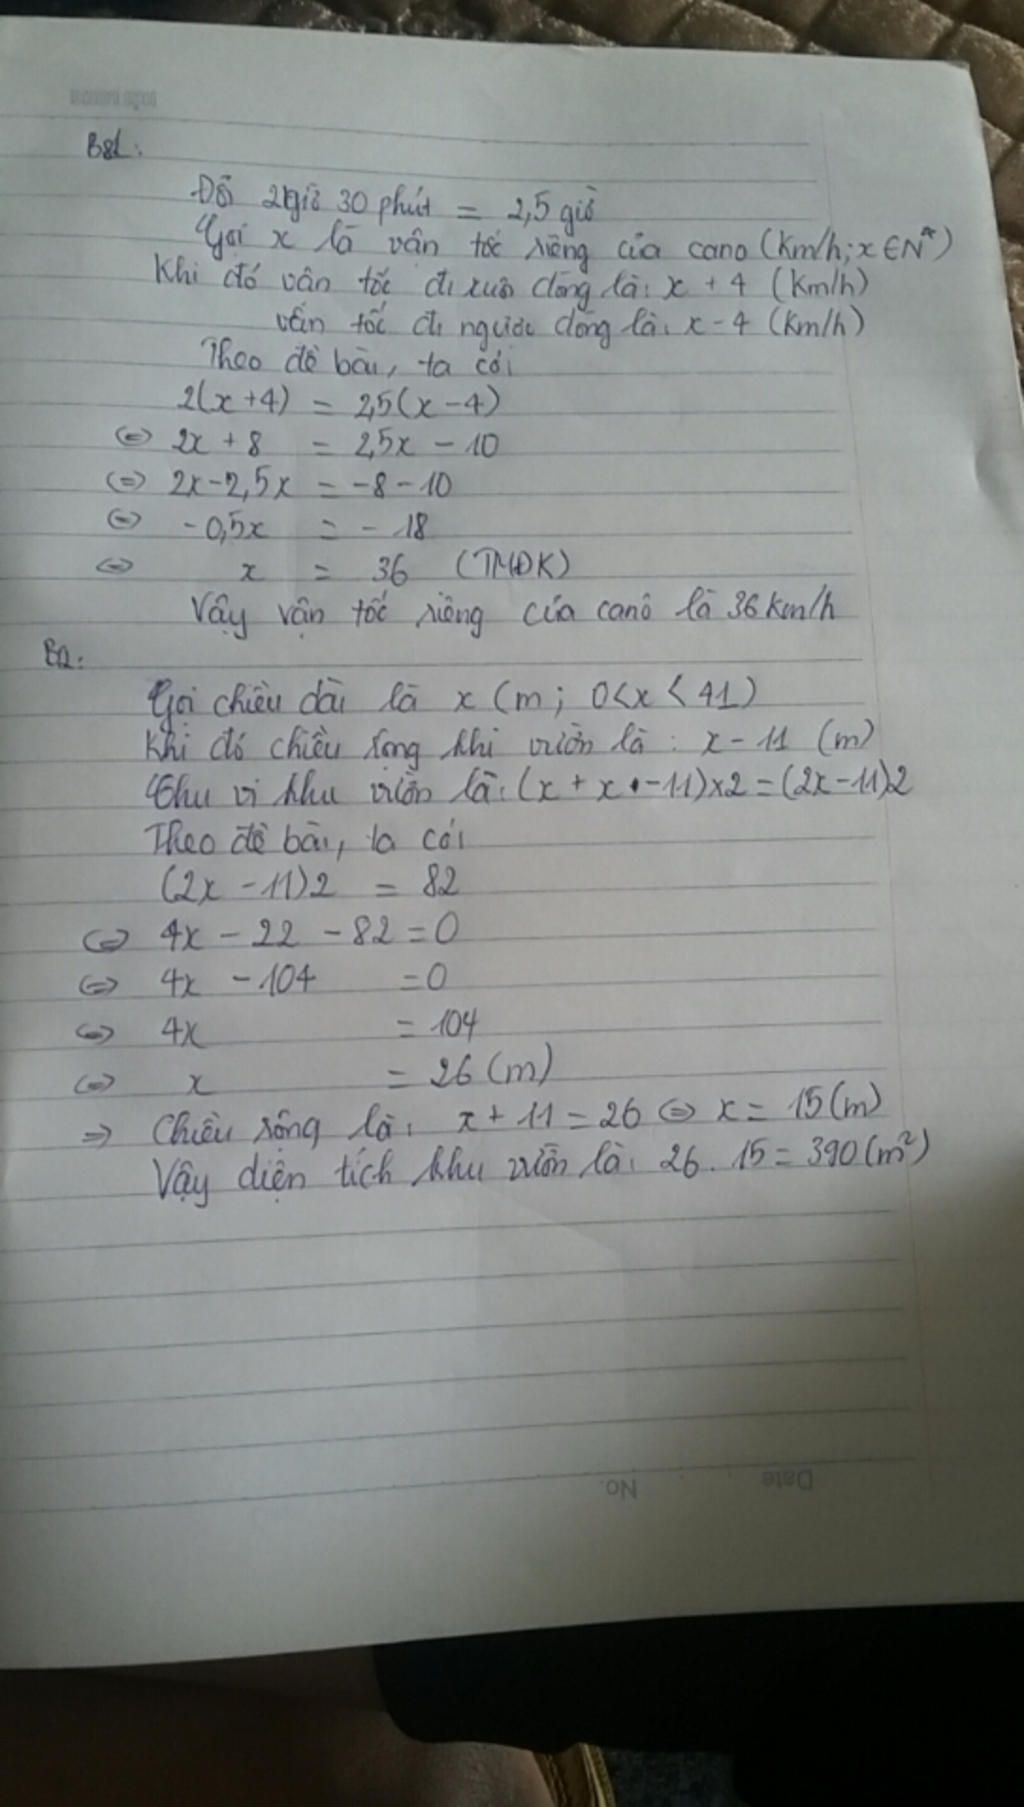 Bài 1:
Đổi 2 giờ 30 phút = 2,5 giờ
Gọi x là vận tốc riêng của cano (Km/h; x ∈ N*)
Khi đó vận tốc đi xuôi dòng là: x + 4 (Km/h)
vận tốc đi ngược dòng là: x - 4 (Km/h)
Theo đề bài, ta có:
2(x+4) = 2,5(x-4)
⇔ 2x + 8 = 2,5x - 10
⇔ 2x - 2,5x = -8 - 10
⇔ -0,5x = - 18
⇔ x = 36 (TMĐK)
Vậy vận tốc riêng của canô là 36 Km/h
B2:
Gọi chiều dài là x (m; 0<x<41)
Khi đó chiều rộng khu vườn là: x - 11 (m)
Chu vi khu vườn là: (x + x - 11)×2 = (2x - 11)2
Theo đề bài, ta có:
(2x - 11)2 = 82
⇔ 4x - 22 - 82 = 0
⇔ 4x - 104 = 0
⇔ 4x = 104
⇔ x = 26 (m)
⇒ Chiều rộng là: x + 11 = 26 ⇔ x = 15 (m)
Vậy diện tích khu vườn là: 26 . 15 = 390 (m²)
No. Date